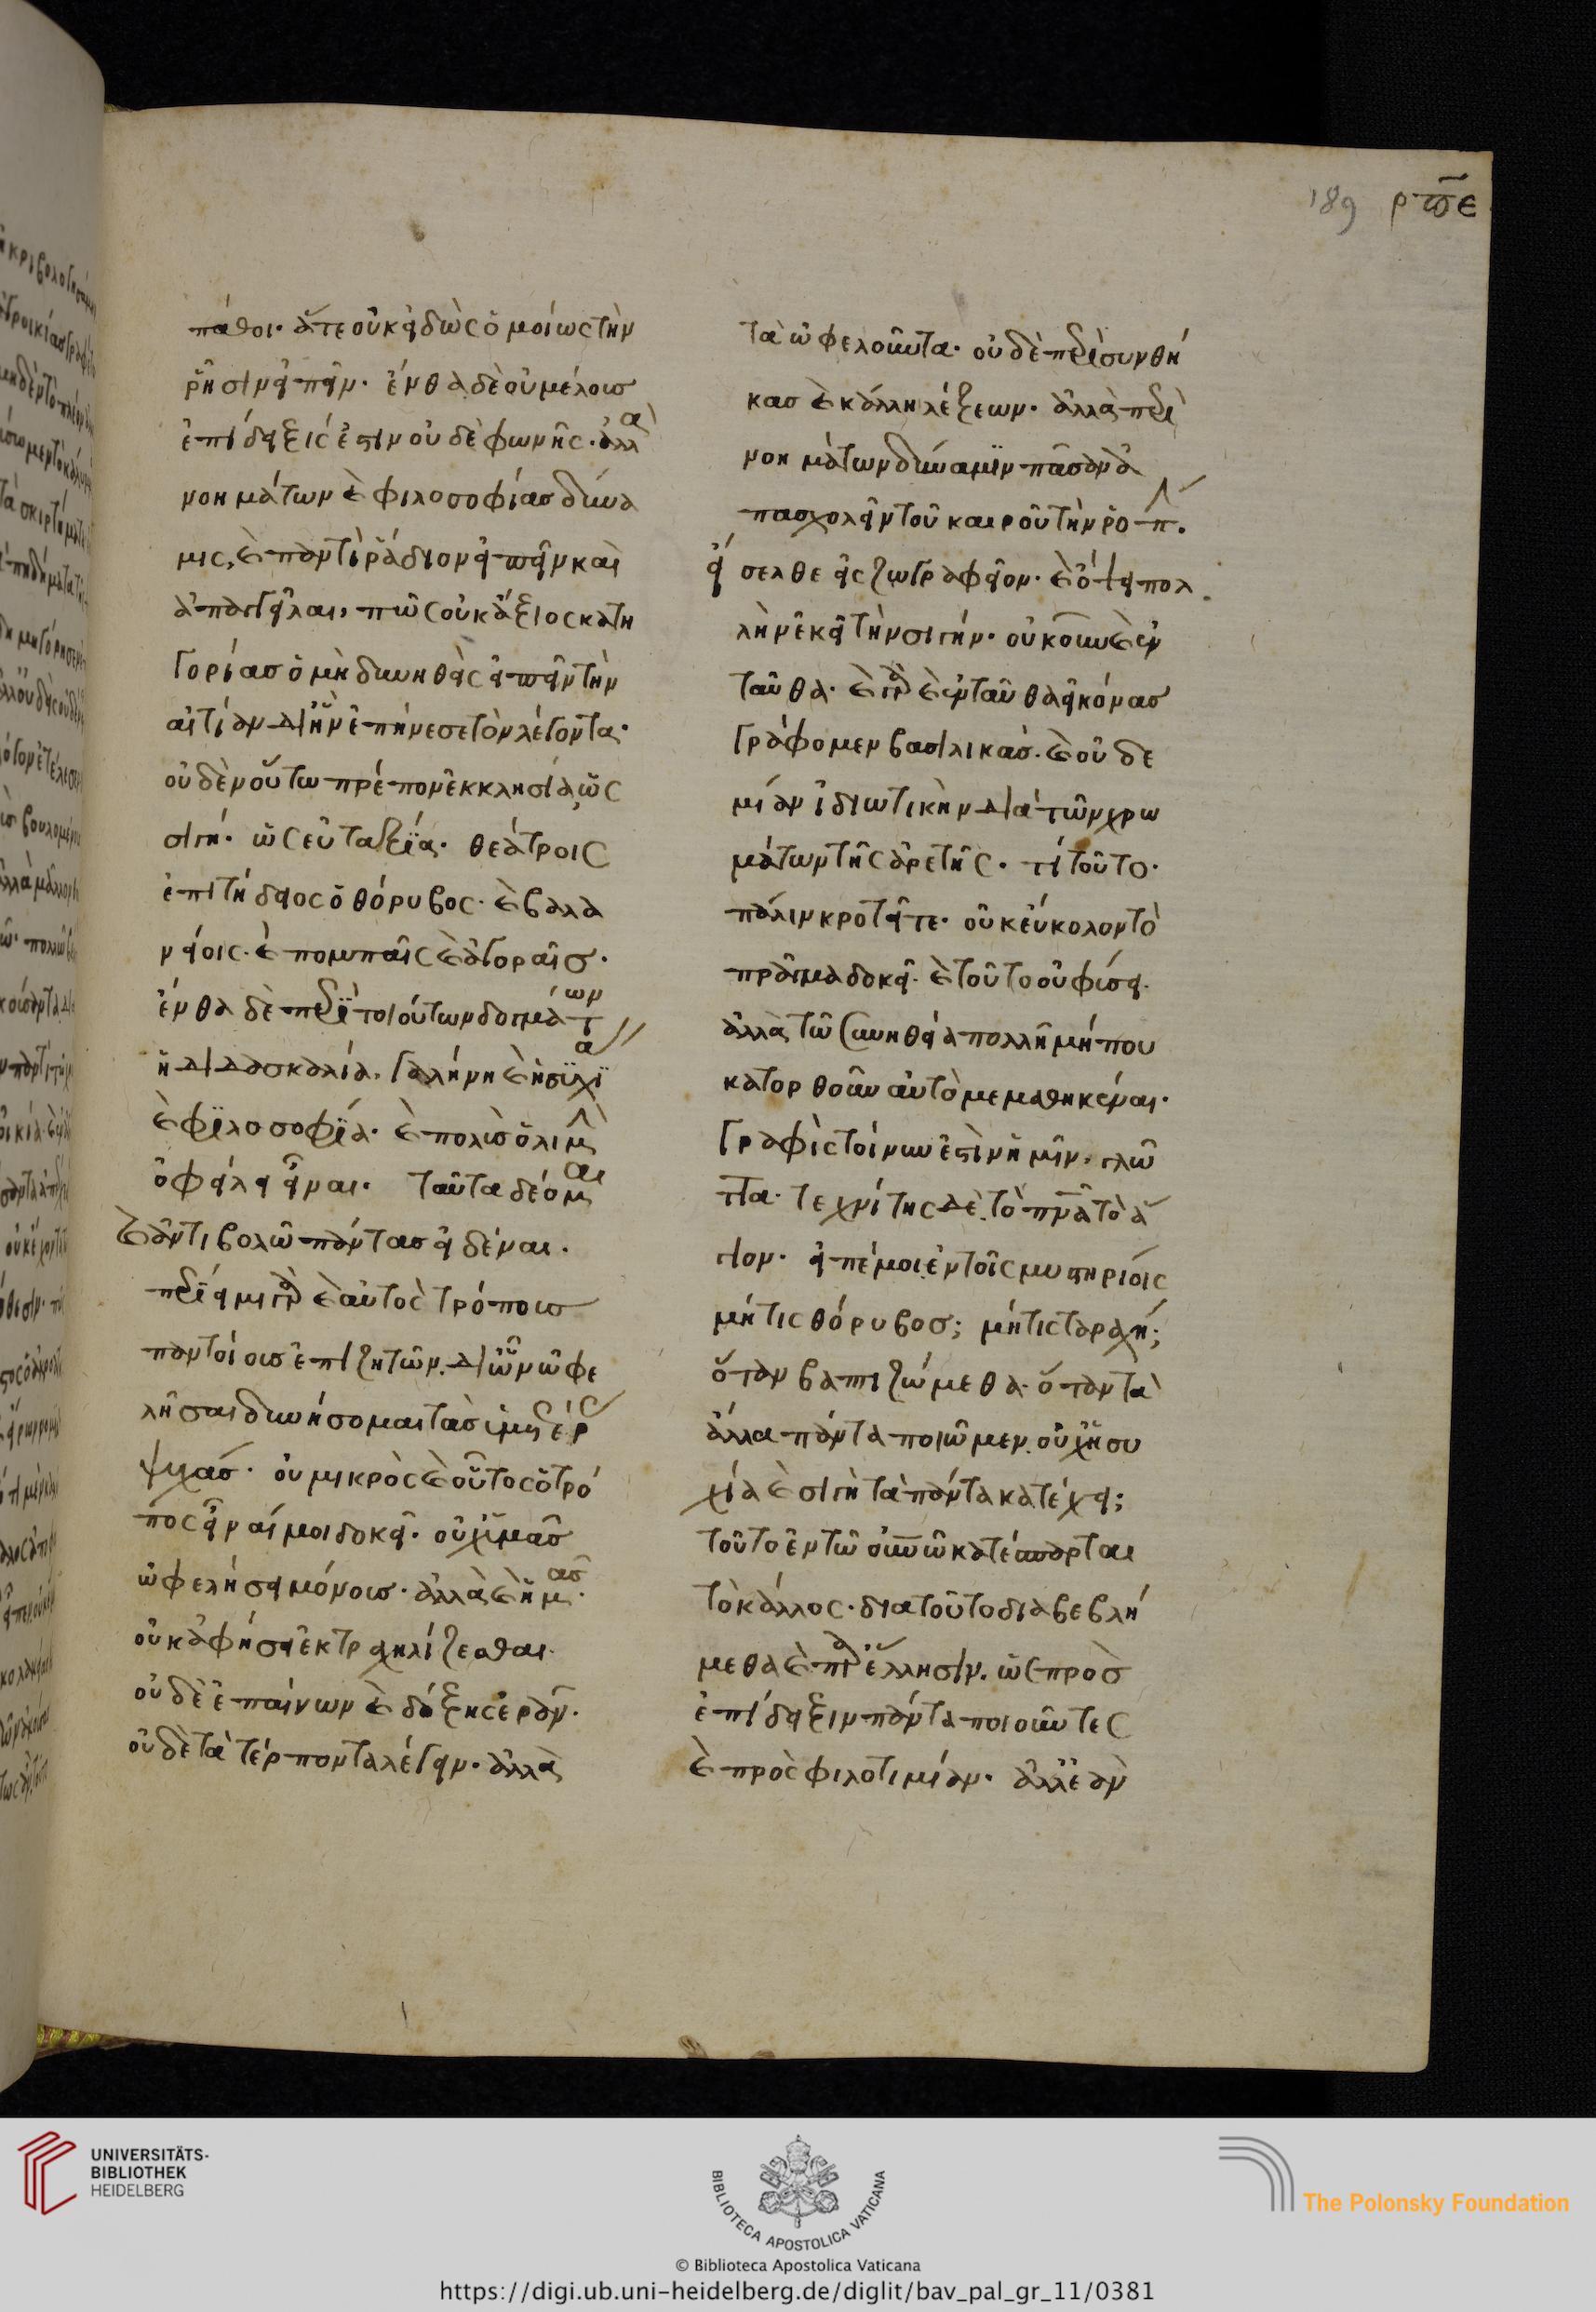 189 ρπε
πάθοι· ἅτε οὐκ εἰδὼς ὁμοίως τὴν
ῥῆσιν εἰπεῖν· ἐνθα δὲ οὐ μέλους
ἐπίδειξίς ἐστιν οὐδὲ φωνῆς· ἀλλὰ
νοημάτων καὶ φιλοσοφίας δύνα
μις, καὶ παντὶ ῥάδιον εἰπεῖν καὶ
ἀπαγγεῖλαι, πῶς οὐκ ἄξιος κατη
γορίας ὁ μὴ δυνηθεὶς εἰπεῖν τὴν
αἰτίαν δι ἣν ἐπήνεσε τὸν λέγοντα·
οὐδὲν οὕτω πρέπον ἐκκλησία, ὡς
σιγή· ὡς εὐταξία· θεάτροις
ἐπιτήδειος ὁ θόρυβος· καὶ βαλα
νείοις· καὶ πομπαῖς καὶ ἀγοραῖς·
ἔνθα δὲ περὶ τοιούτων δογμάτων
ἡ διδασκαλία, γαλήνη καὶ ἡσυχία
καὶ φιλοσοφία· καὶ πολὺς ὁ λιμὴν
ὀφείλει εἶναι· ταῦτα δέομαι
καὶ ἀντιβολῶ πάντας εἰδέναι·
περίειμι γὰρ καὶ αὐτὸς τρόπους
παντοίους ἐπιζητῶν, δι ὧν ὠφε
λῆσαι δυνήσομαι τὰς ὑμετέρας
ψυχάς· οὐ μικρὸς καὶ οὗτος ὁ τρό
πος εἶναί μοι δοκεῖ· οὐχ ὑμᾶς
ὠφελήσει μόνους· ἀλλὰ καὶ ἡμᾶς·
οὐκ ἀφήσει ἐκτραχηλίζεσθαι·
οὐδὲ ἐπαίνων καὶ δόξης ἐρᾶν·
οὐδὲ τὰ τέρποντα λέγειν· ἀλλὰ
τὰ ὠφελοῦντα· οὐδὲ περὶ συνθή
κας καὶ κάλλη λέξεων· ἀλλὰ περὶ
νοημάτων δύναμιν πᾶσαν ἀ
πασχολεῖν τοῦ καιροῦ τὴν ῥοπήν·
εἴσελθε εἰς ζωγραφεῖον· καὶ ὄψει πολ
λὴν ἐκεῖ τὴν σιγήν· οὐκοῦν καὶ ἐν
ταῦθα· καὶ γὰρ καὶ ἐνταῦθα εἰκόνας
γράφομεν βασιλικάς· καὶ οὐδε
μίαν ἰδιωτικὴν διὰ τῶν χρω
μάτων τῆς ἀρετῆς· τί τοῦτο·
πάλιν κροτεῖτε· οὐκ εὔκολον τὸ
πρᾶγμα δοκεῖ· καὶ τοῦτο οὐ φύσει·
ἀλλὰ τῶ συνηθεία πολλῆ μήπου
κατορθοῦν αὐτὸ μεμαθηκέναι·
γραφὶς τοίνυν ἐστὶν ἡμῖν, γλῶ
ττα· τεχνίτης δὲ, τὸ πνα τὸ ἅ
γιον· εἰπέ μοι ἐν τοῖς μυστηρίοις
μήτις θόρυβος; μήτις ταραχή;
ὅταν βαπτιζώμεθα· ὅταν τὰ
ἄλλα πάντα ποιῶμεν, οὐχ ἡσυ
χία καὶ σιγὴ τὰ πάντα κατέχει;
τοῦτο ἐν τῶ οὐνῶ κατέσπαρται
τὸ κάλλος· διατοῦτο διαβεβλή
μεθα καὶ παρ ἕλλησιν, ὡς πρὸς
ἐπίδειξιν πάντα ποιοῦντες
καὶ πρὸς φιλοτιμίαν· ἀλλ ἐὰν
UNIVERSITÄTS-
BIBLIOTHEK
HEIDELBERG
BIBLIOTECA APOSTOLICA VATICANA
The Polonsky Foundation
© Biblioteca Apostolica Vaticana
https://digi.ub.uni-heidelberg.de/diglit/bav_pal_gr_11/0381